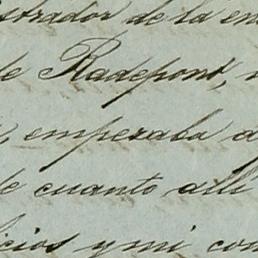 strador de la em
de Radepont,
empezaba a
de cuanto alli
icios y mi con